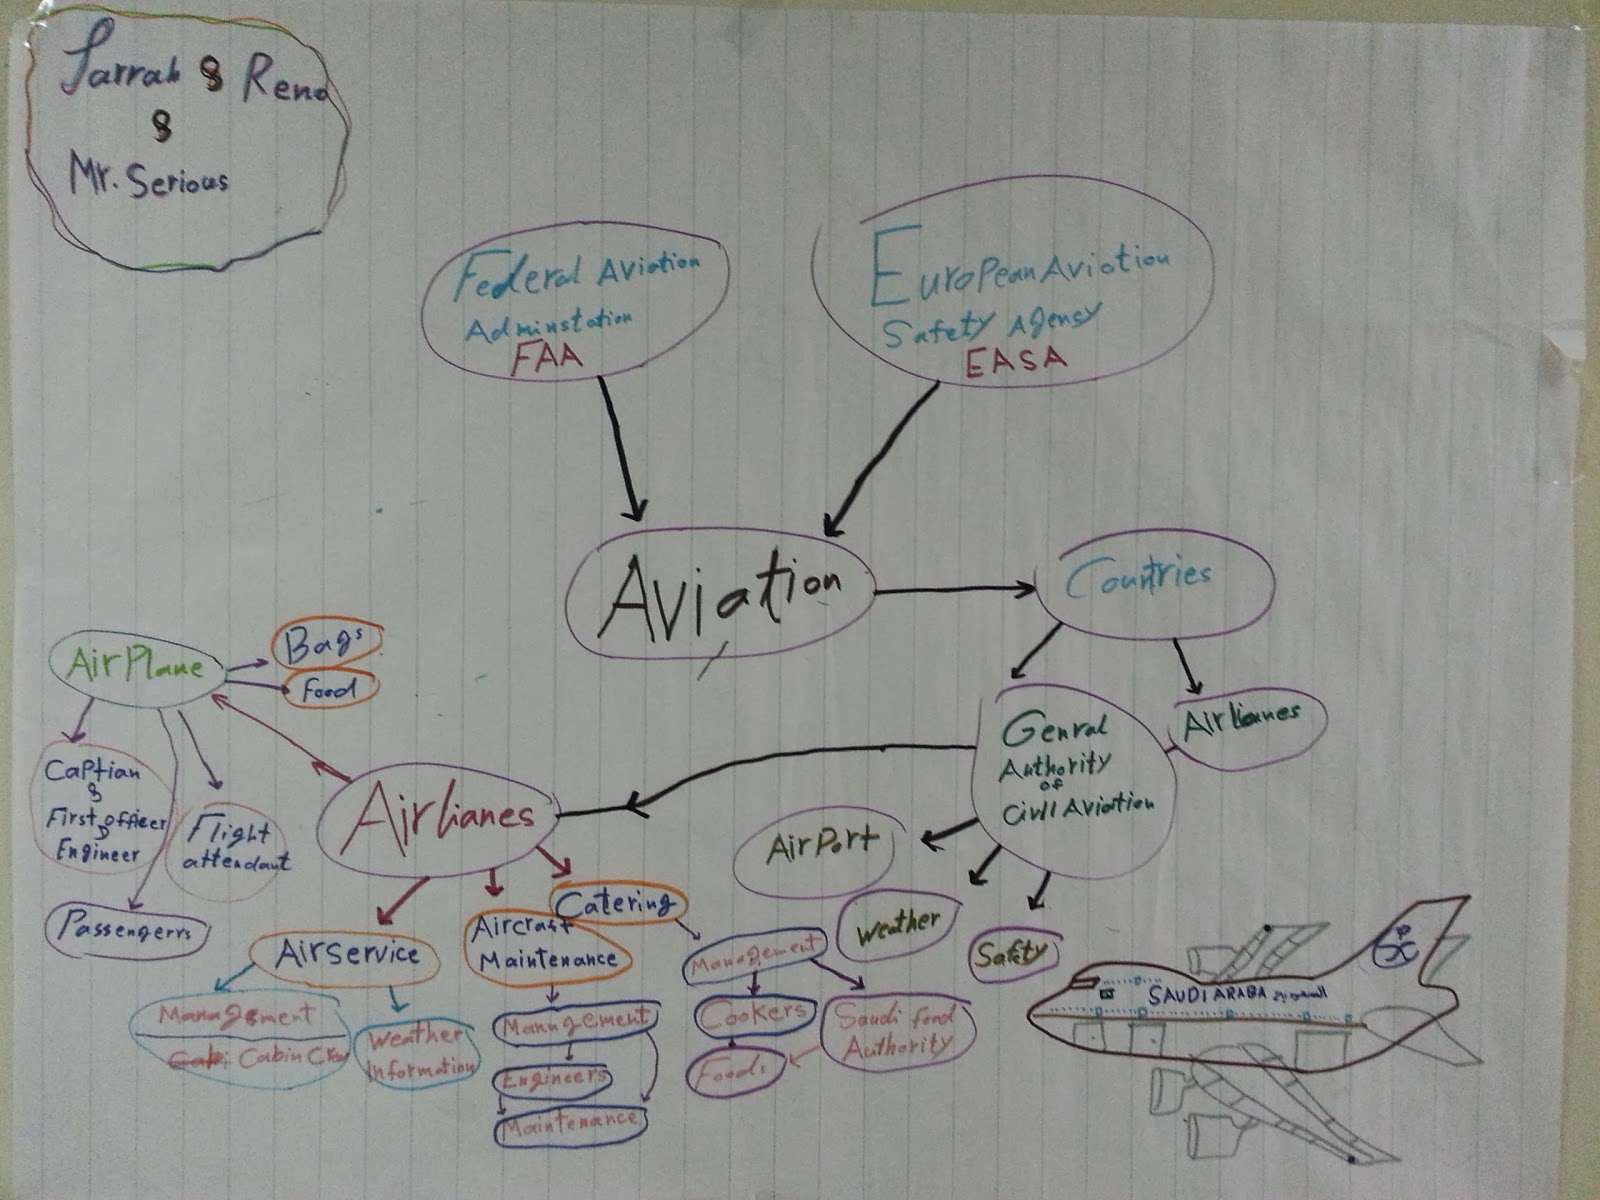 Jarrah & Reno
&
Mr. Serious
Federal Aviation
Adminstation
FAA
EuroPean Aviation
Safety Agensy
EASA
Aviation
Countries
Genral
Authority
of
Civil Aviation
Airlianes
AirPlane
Bags
Food
Captian
&
First officer
&
Engineer
Flight
attendant
Passengerrs
Airlianes
AirPort
Weather
Safety
Airservice
Management
Cabin Crew
Weather
Information
Aircraft
Maintenance
Management
Engineers
Maintenance
Catering
Management
Cookers
Foods
Saudi food
Authority
SAUDI ARABA السعودية